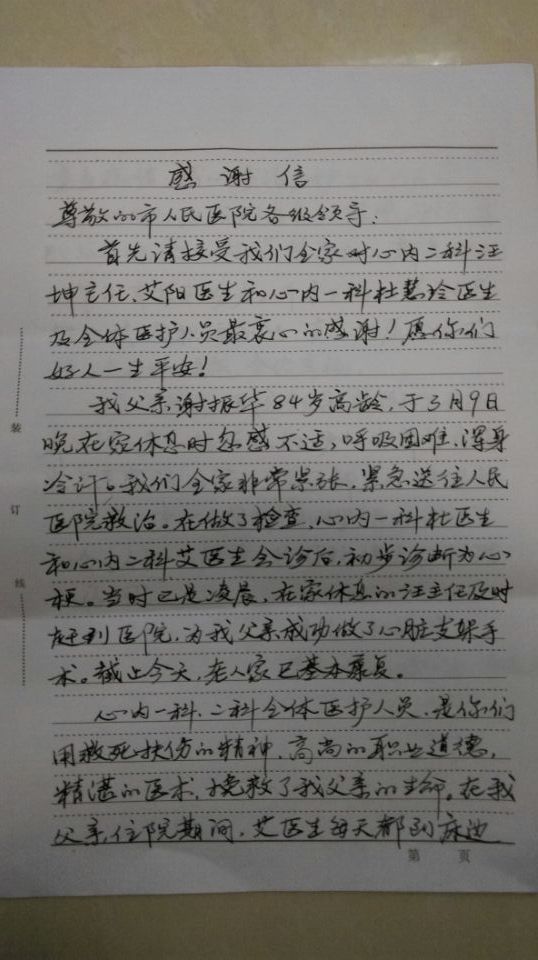 感谢信
尊敬的市人民医院各级领导：
首先请接受我们全家对心内二科汪
坤主任、艾阳医生和心内一科杜慧玲医生
及全体医护人员最衷心的感谢！愿你们
好人一生平安！
我父亲谢振华84岁高龄，于3月9日
晚在家休息时忽感不适，呼吸困难、浑身
冷汗。我们全家非常紧张，紧急送往人民
医院救治。在做了检查，心内一科杜医生
和心内二科艾医生会诊后，初步诊断为心
梗。当时已是凌晨，在家休息的汪主任及时
赶到医院，为我父亲成功做了心脏支架手
术。截止今天，老人家已基本康复。
心内一科、二科全体医护人员，是你们
用救死扶伤的精神，高尚的职业道德，
精湛的医术，挽救了我父亲的生命。在我
父亲住院期间，艾医生每天都到床边
第 页
装
订
线